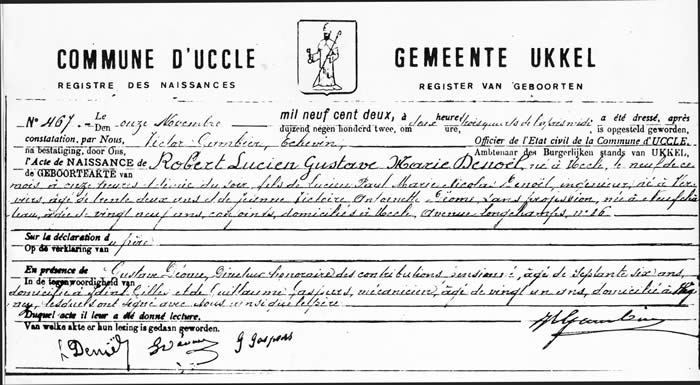 COMMUNE D'UCCLE
GEMEENTE UKKEL
REGISTRE DES NAISSANCES
REGISTER VAN GEBOORTEN
N° 467. Le onze Novembre mil neuf cent deux, à heure trois quarts de l'après midi a été dressé, après
Den duizend negen honderd twee, om ure, is opgesteld geworden,
constatation, par Nous, Victor Echevin, Officier de l'Etat civil de la Commune d'UCCLE,
na bestatiging, door Ons, Ambtenaar des Burgerlijken stands van UKKEL,
l'Acte de NAISSANCE de Robert Lucien Gustave Marie Denoël, né à Uccle, le neuf de ce
de GEBOORTEAKTE van mois à onze heures et demie du soir, fils de Lucien Paul Marie Nicolas Denoël, ingénieur, né à Ver
viers, âgé de trente deux ans et de Jeanne Victoire Antoinette sans profession, née à Neufchâ
teau, âgée de vingt neuf ans, conjoints, domiciliés à Uccle, Avenue Longchamps, n° 26.
Sur la déclaration du père
Op de verklaring van
En présence de Gustave Directeur honoraire des contributions âgé de septante six ans,
In de tegenwoordigheid van
domicilié à Saint Gilles et de Guillaume Gaspers, mécanicien, âgé de vingt un ans, domicilié à
lesquels ont signé avec Nous ainsi que le père.
Duquel acte il leur a été donné lecture.
Van welke akte er hun lezing is gedaan geworden.
L Denoël G Gaspers